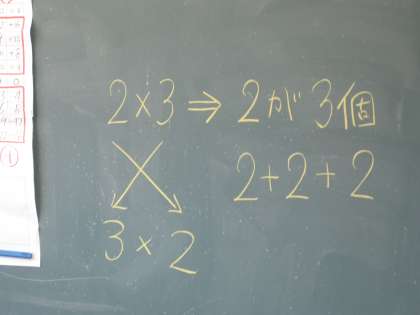 2×3⇒2が3個
2+2+2
3×2